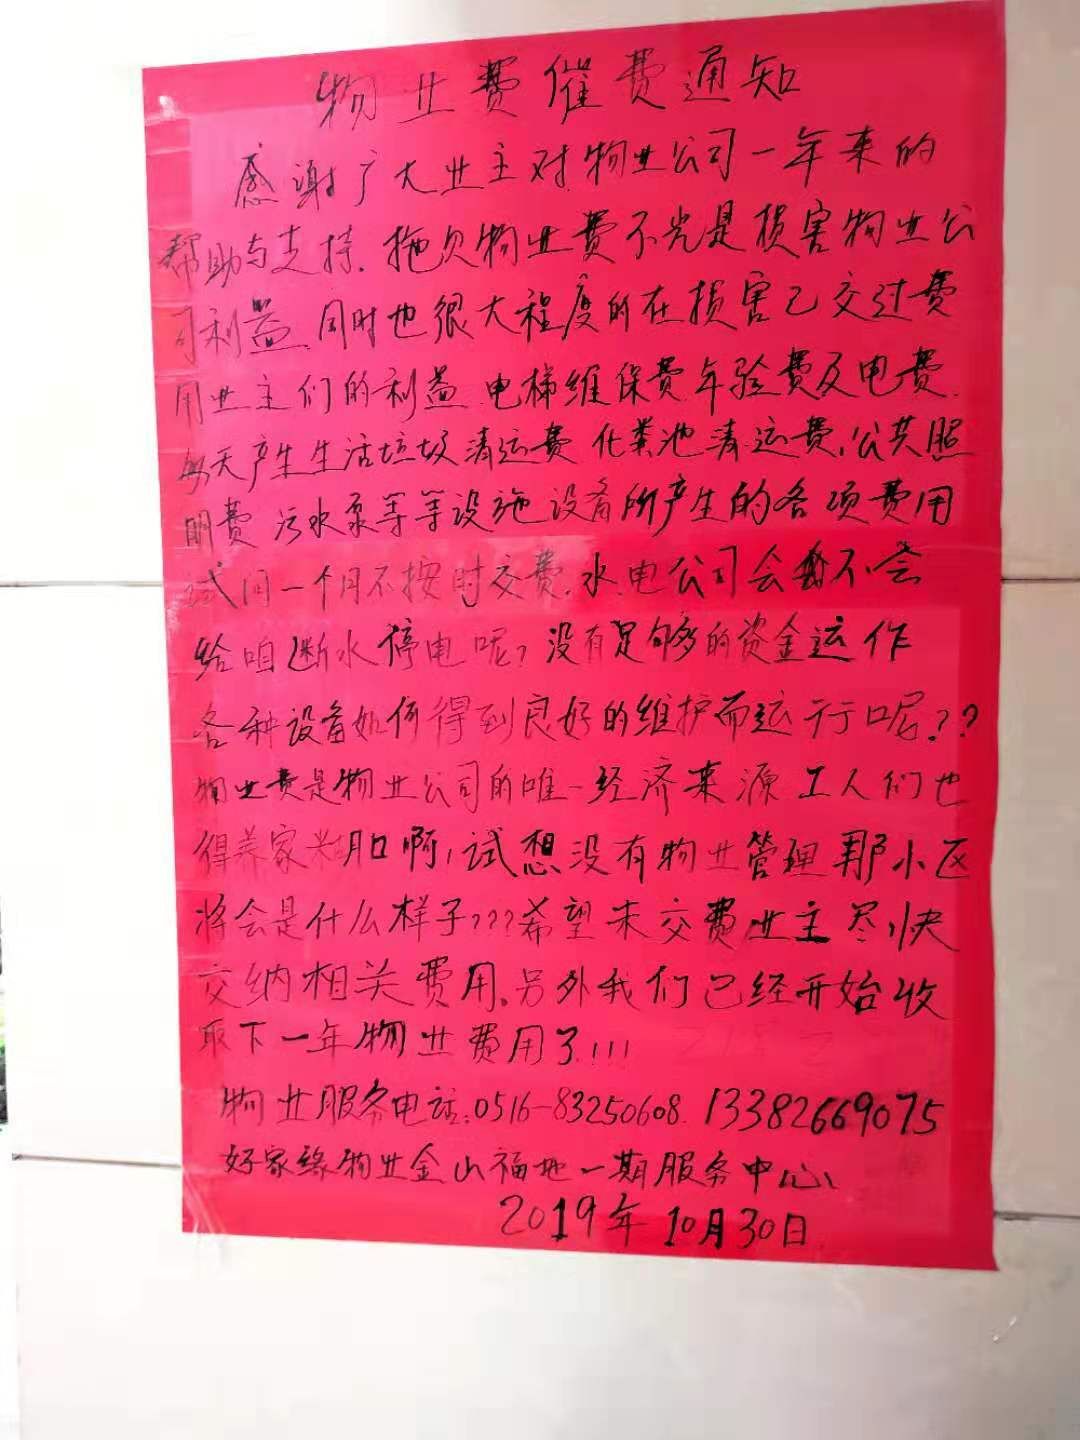 物业费催费通知
感谢广大业主对物业公司一年来的
帮助与支持.拖欠物业费不光是损害物业公
司利益.同时也很大程度的在损害已交过费
用业主们的利益.电梯维保费年验费及电费.
每天产生生活垃圾清运费 化粪池清运费,公共照
明费 污水泵等等设施设备所产生的各项费用
试问一个月不按时交费.水.电公司会不会
给咱断水停电呢?没有足够多的资金运作
各种设备如何得到良好的维护而运行呢??
物业费是物业公司的唯一经济来源工人们也
得养家糊口啊,试想没有物业管理那小区
将会是什么样子???希望未交费业主尽快
交纳相关费用.另外我们已经开始收
取下一年物业费用了!!!
物业服务电话:0516-83250608.13382669075
好家缘物业金山福地一期服务中心
2019年10月30日.